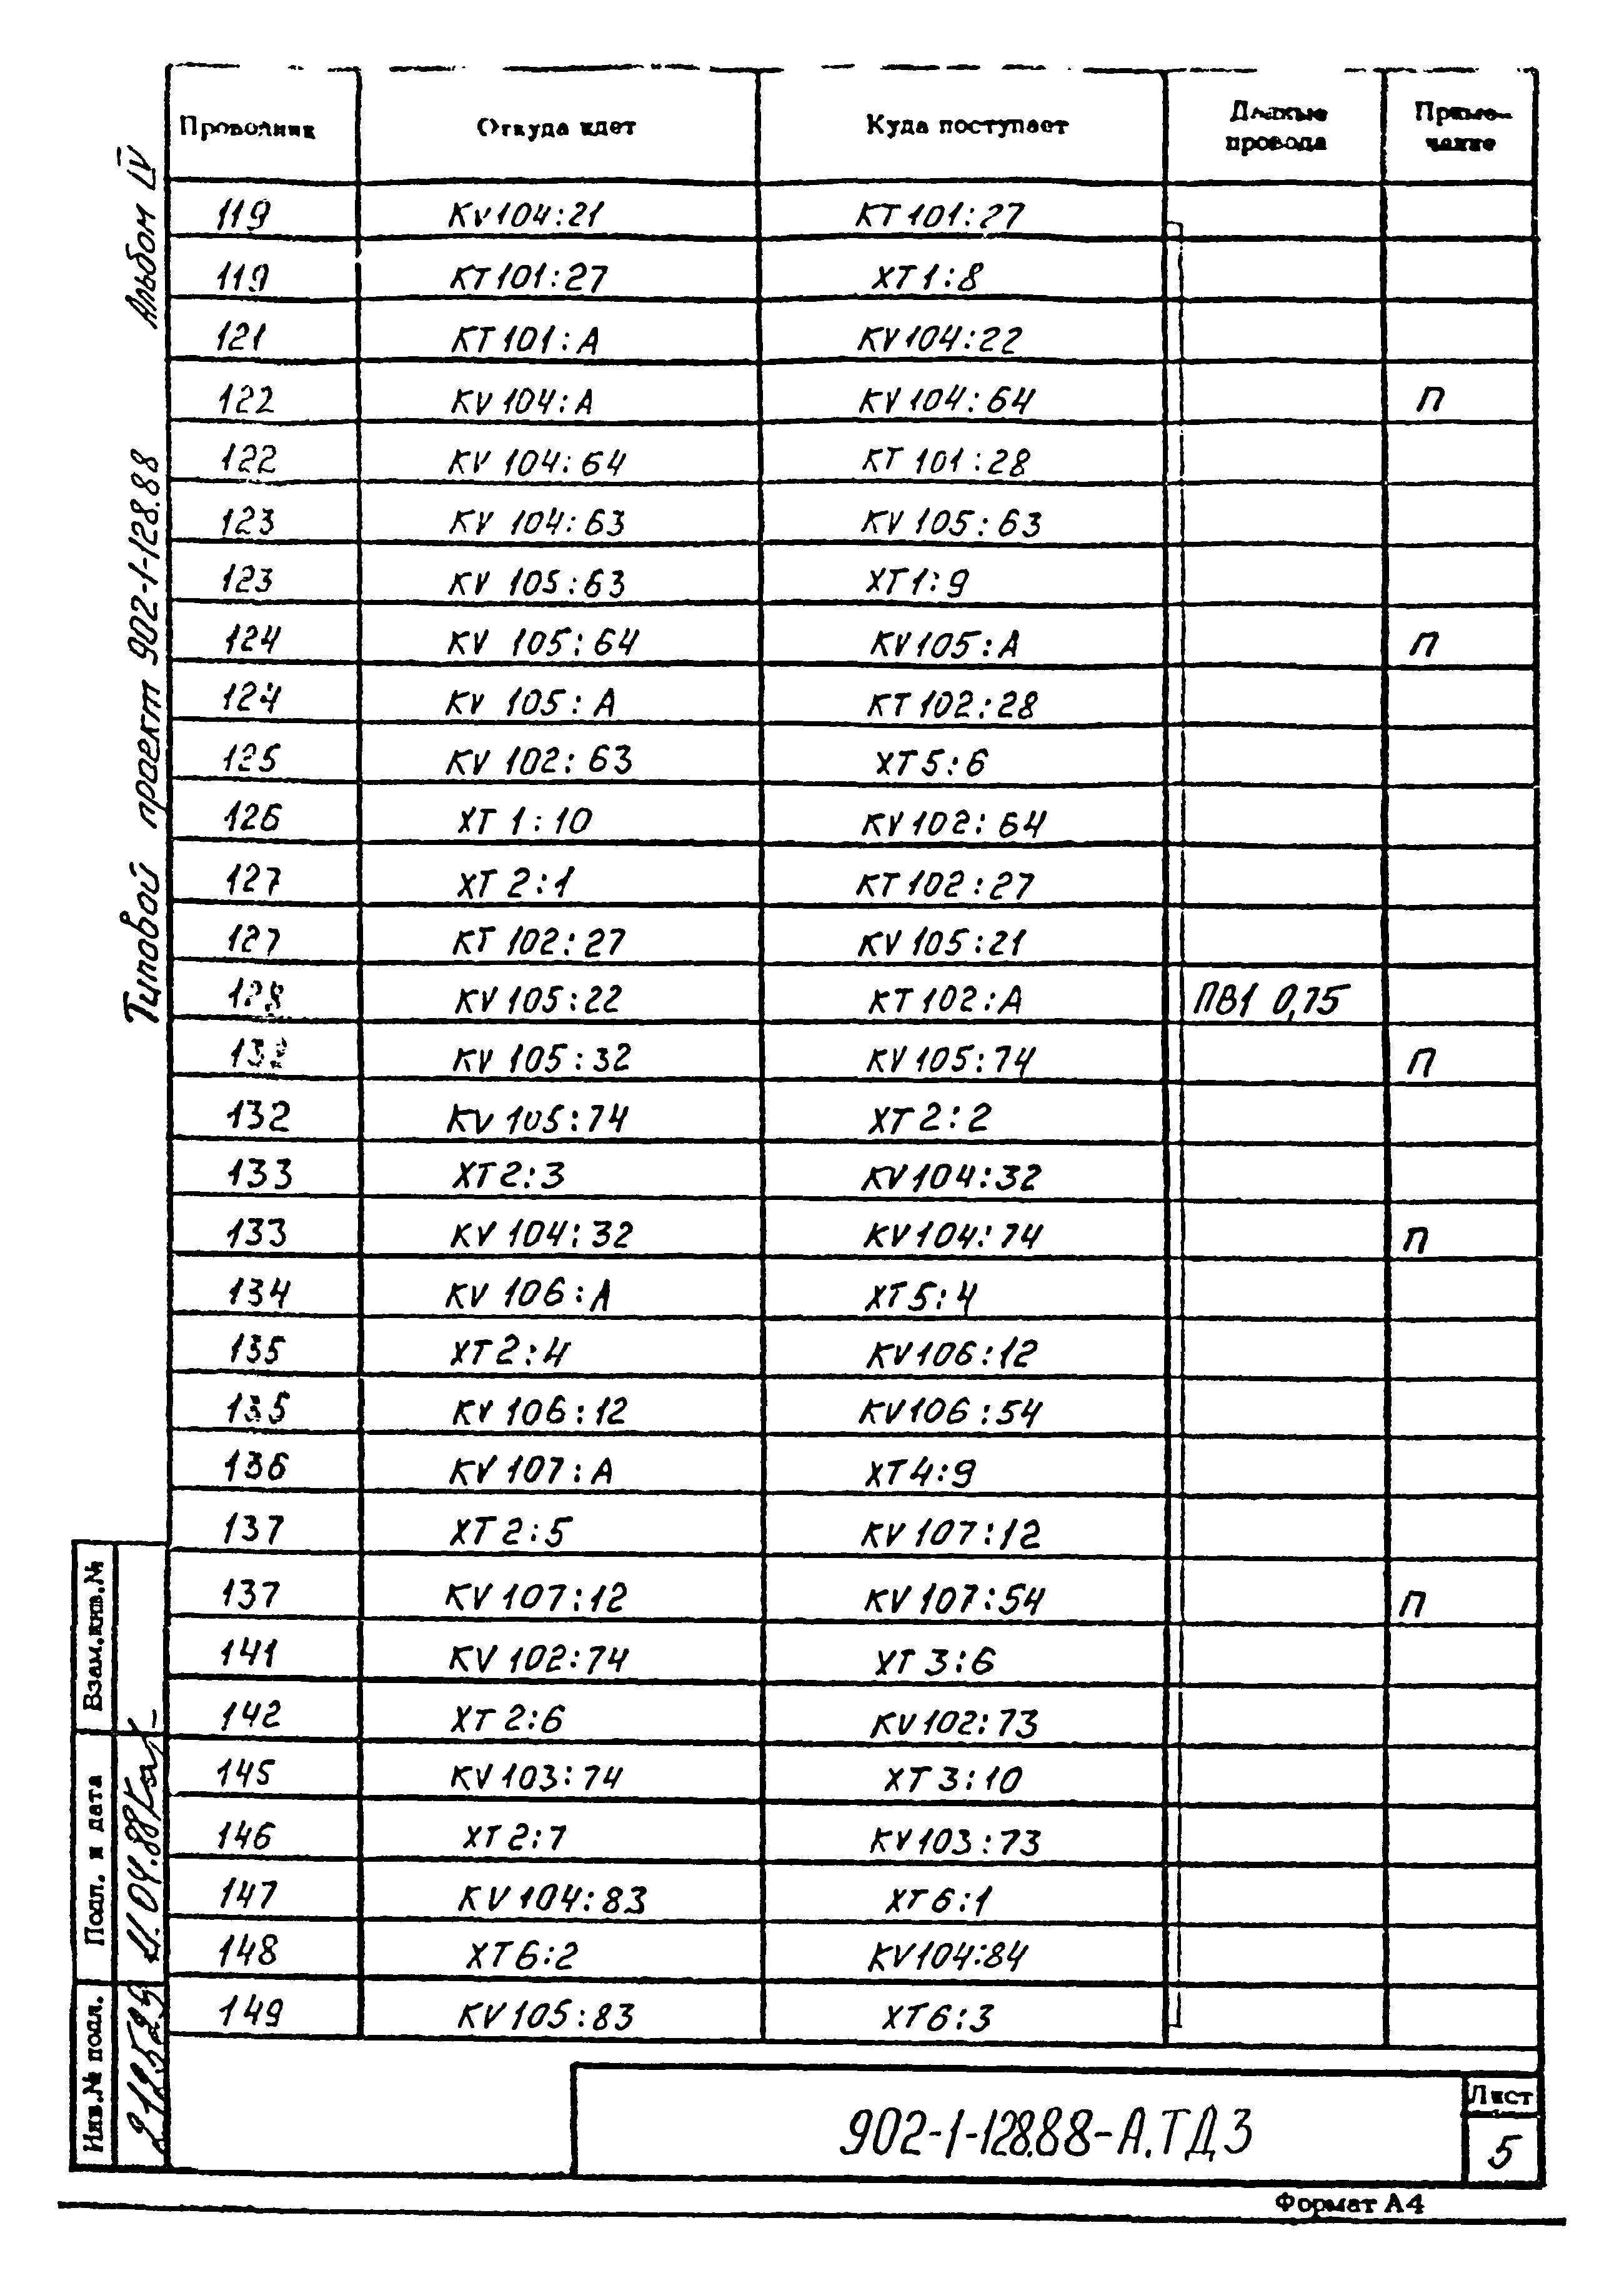 Проводник Откуда идет Куда поступает Данные провода Приме-чание
119 KV104:21 KT101:27
119 KT101:27 XT1:8
121 KT101:A KV104:22
122 KV104:A KV104:64 П
122 KV104:64 KT101:28
123 KV104:63 KV105:63
123 KV105:63 XT1:9
124 KV105:64 KV105:A П
124 KV105:A KT102:28
125 KV102:63 XT5:6
126 XT1:10 KV102:64
127 XT2:1 KT102:27
127 KT102:27 KV105:21
128 KV105:22 KT102:A ПВ1 0,75
132 KV105:32 KV105:74 П
132 KV105:74 XT2:2
133 XT2:3 KV104:32
133 KV104:32 KV104:74 П
134 KV106:A XT5:4
135 XT2:4 KV106:12
135 KV106:12 KV106:54
136 KV107:A XT4:9
137 XT2:5 KV107:12
137 KV107:12 KV107:54 П
141 KV102:74 XT3:6
142 XT2:6 KV102:73
145 KV103:74 XT3:10
146 XT2:7 KV103:73
147 KV104:83 XT6:1
148 XT6:2 KV104:84
149 KV105:83 XT6:3
Типовой проект 902-1-128.88 Альбом IV
Взам.инв.№
Подп. и дата
Инв.№ подл.
902-1-128.88-А.ТД3
Лист
5
Формат А4